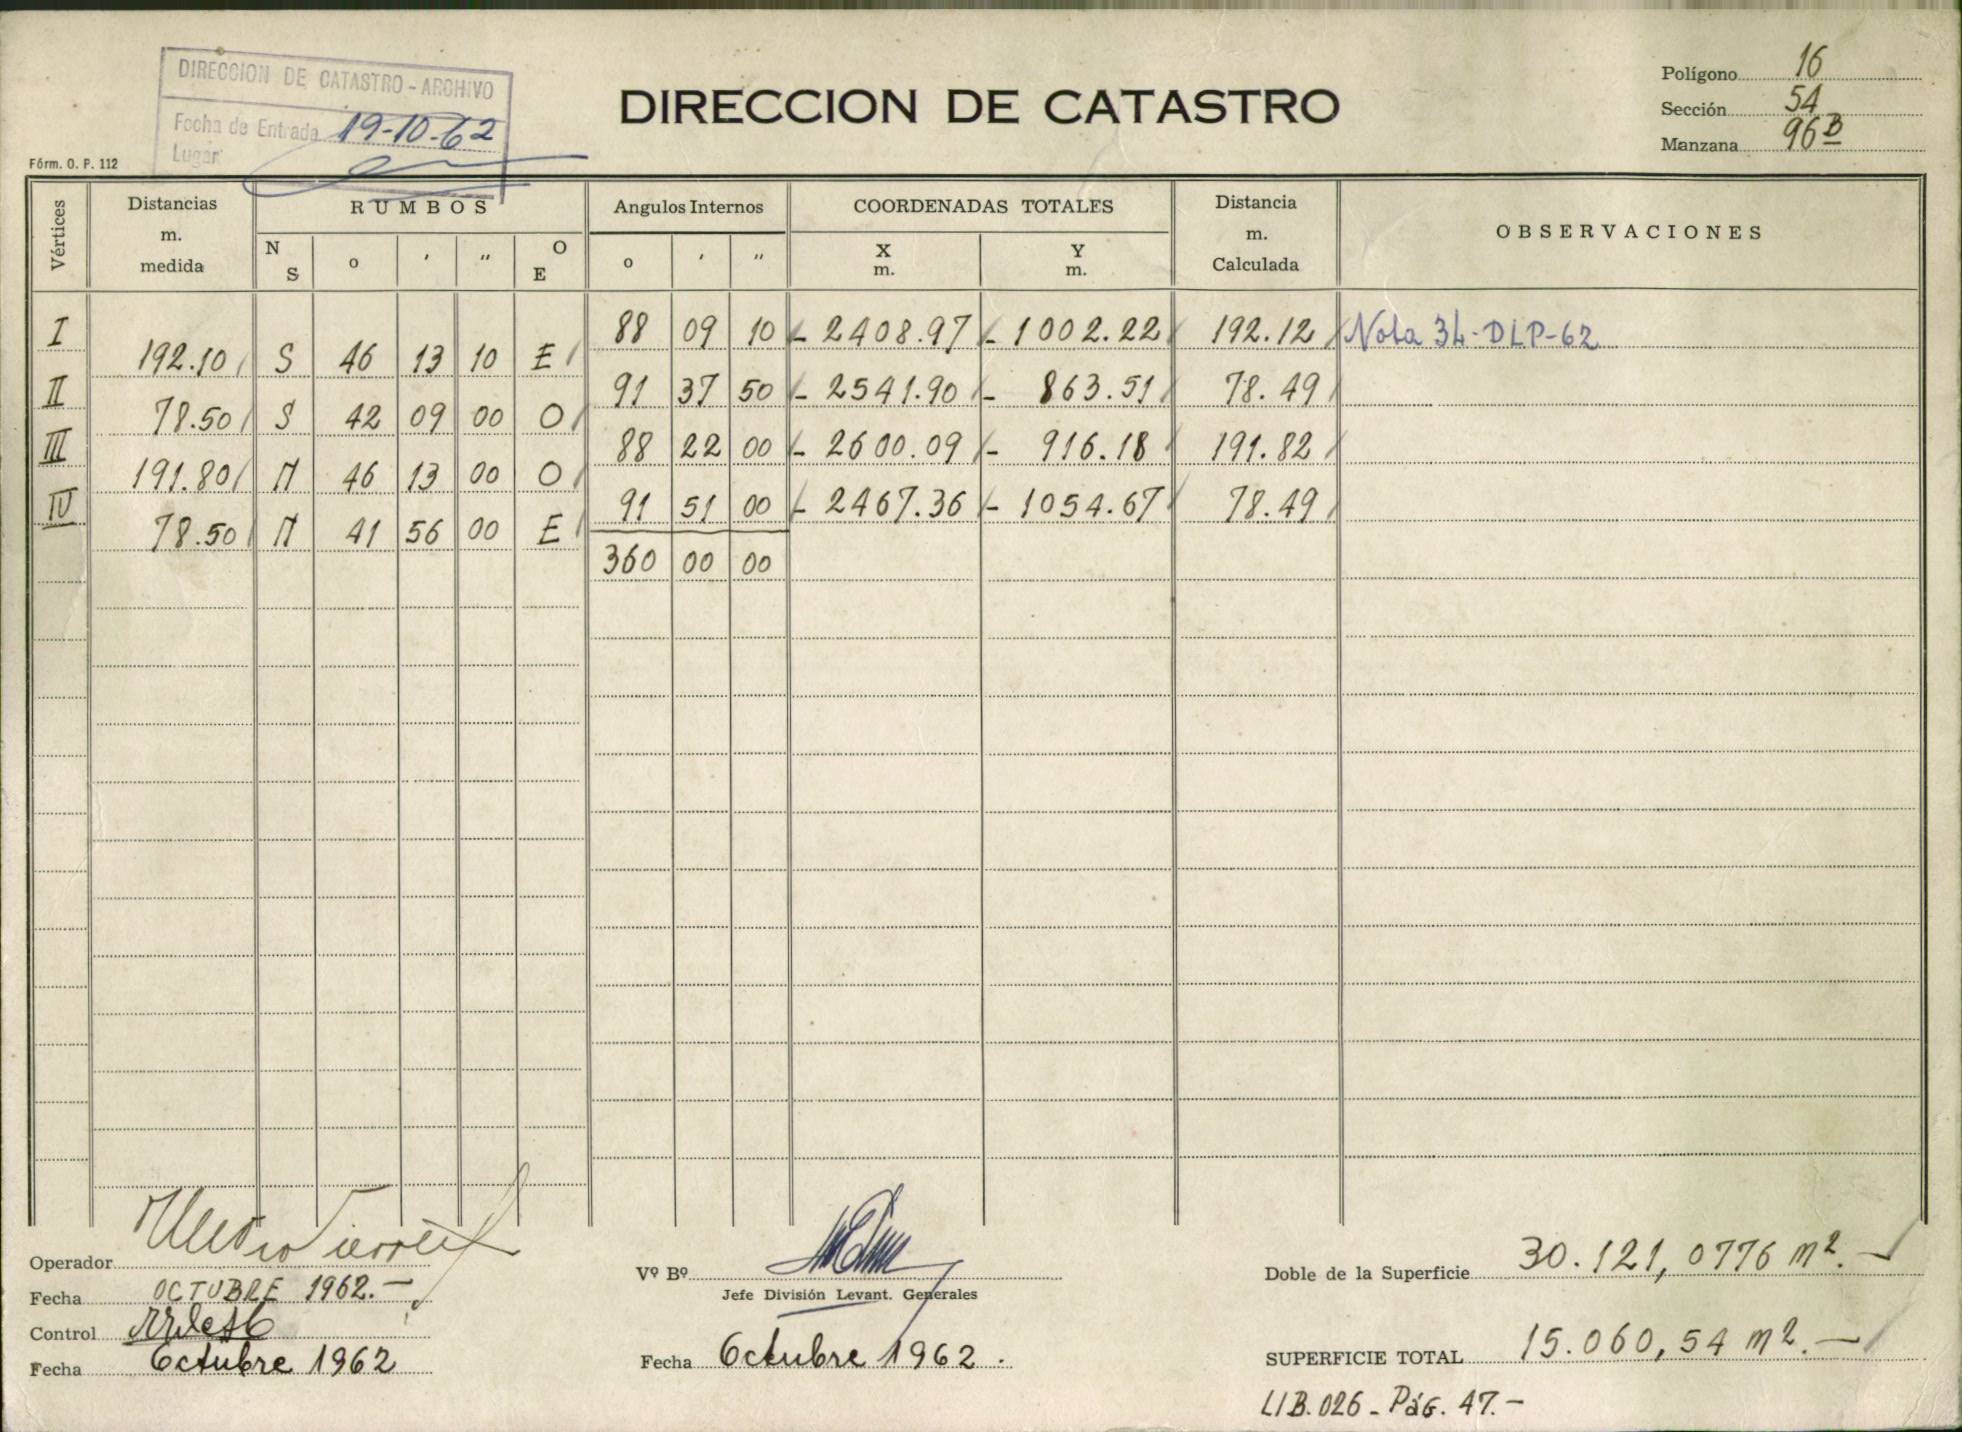 DIRECCION DE CATASTRO - ARCHIVO
Fecha de Entrada 19-10-62
Lugar
Fórm. O. P. 112
DIRECCION DE CATASTRO
Polígono 16
Sección 54
Manzana 96 B
Vértices Distancias m. medida RUMBOS Angulos Internos COORDENADAS TOTALES Distancia m. Calculada OBSERVACIONES
N S o ' " O E o ' " X m. Y m.
I 88 09 10 - 2408.97 - 1002.22 192.12 Nota 34-DLP-62
192.10 S 46 13 10 E
II 91 37 50 - 2541.90 - 863.51 78.49
78.50 S 42 09 00 O
III 88 22 00 - 2600.09 - 916.18 191.82
191.80 N 46 13 00 O
IV 91 51 00 - 2467.36 - 1054.67 78.49
78.50 N 41 56 00 E
360 00 00
Operador
Fecha OCTUBRE 1962.-
Control
Fecha Octubre 1962
Vº Bº
Jefe División Levant. Generales
Fecha Octubre 1962.
Doble de la Superficie 30.121,0776 m2.-
SUPERFICIE TOTAL 15.060,54 m2.-
LIB. 026 - Pág. 47.-